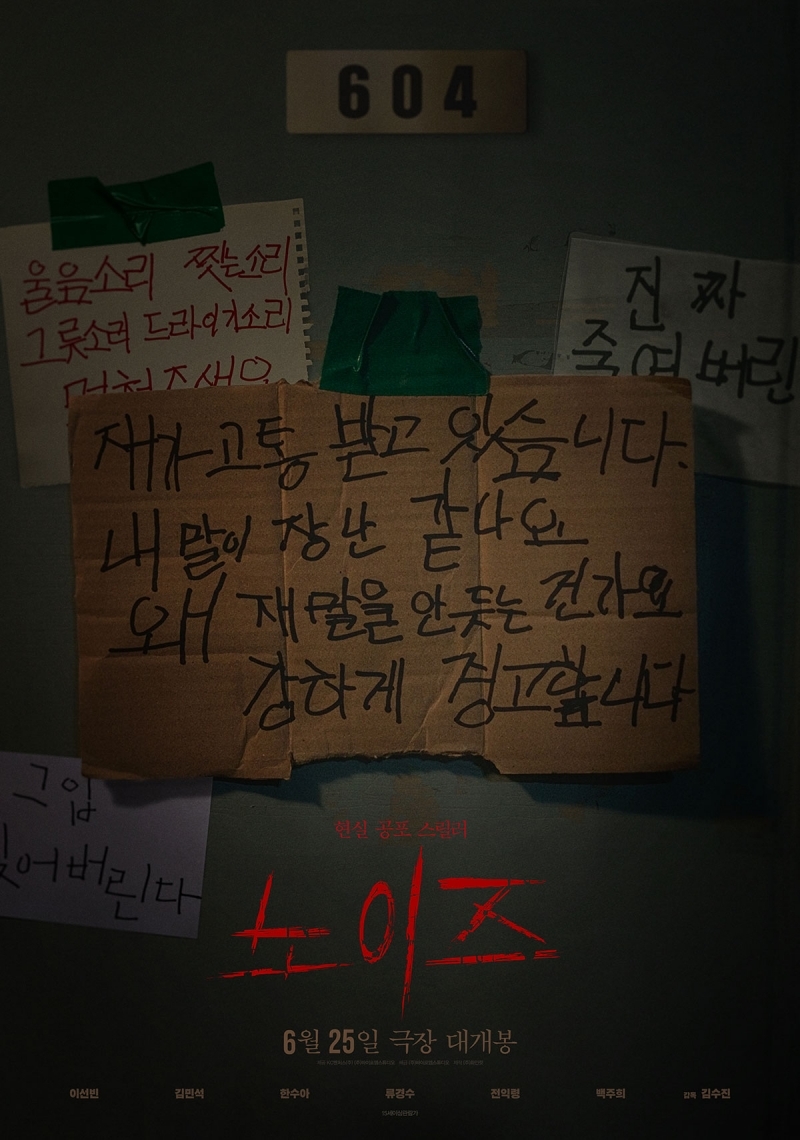 604
울음소리 찢는소리
그릇소리 드라이기소리
멈춰주세요
진짜
죽여버린
재가고통 받고 있습니다.
내 말이 장난 같나요
왜 재말을 안듯는 건가요
강하게 경고합니다
그입
찢어버린다
현실 공포 스릴러
노이즈
6월 25일 극장 대개봉
이선빈 김민석 한수아 류경수 전익령 백주희 감독 김수진